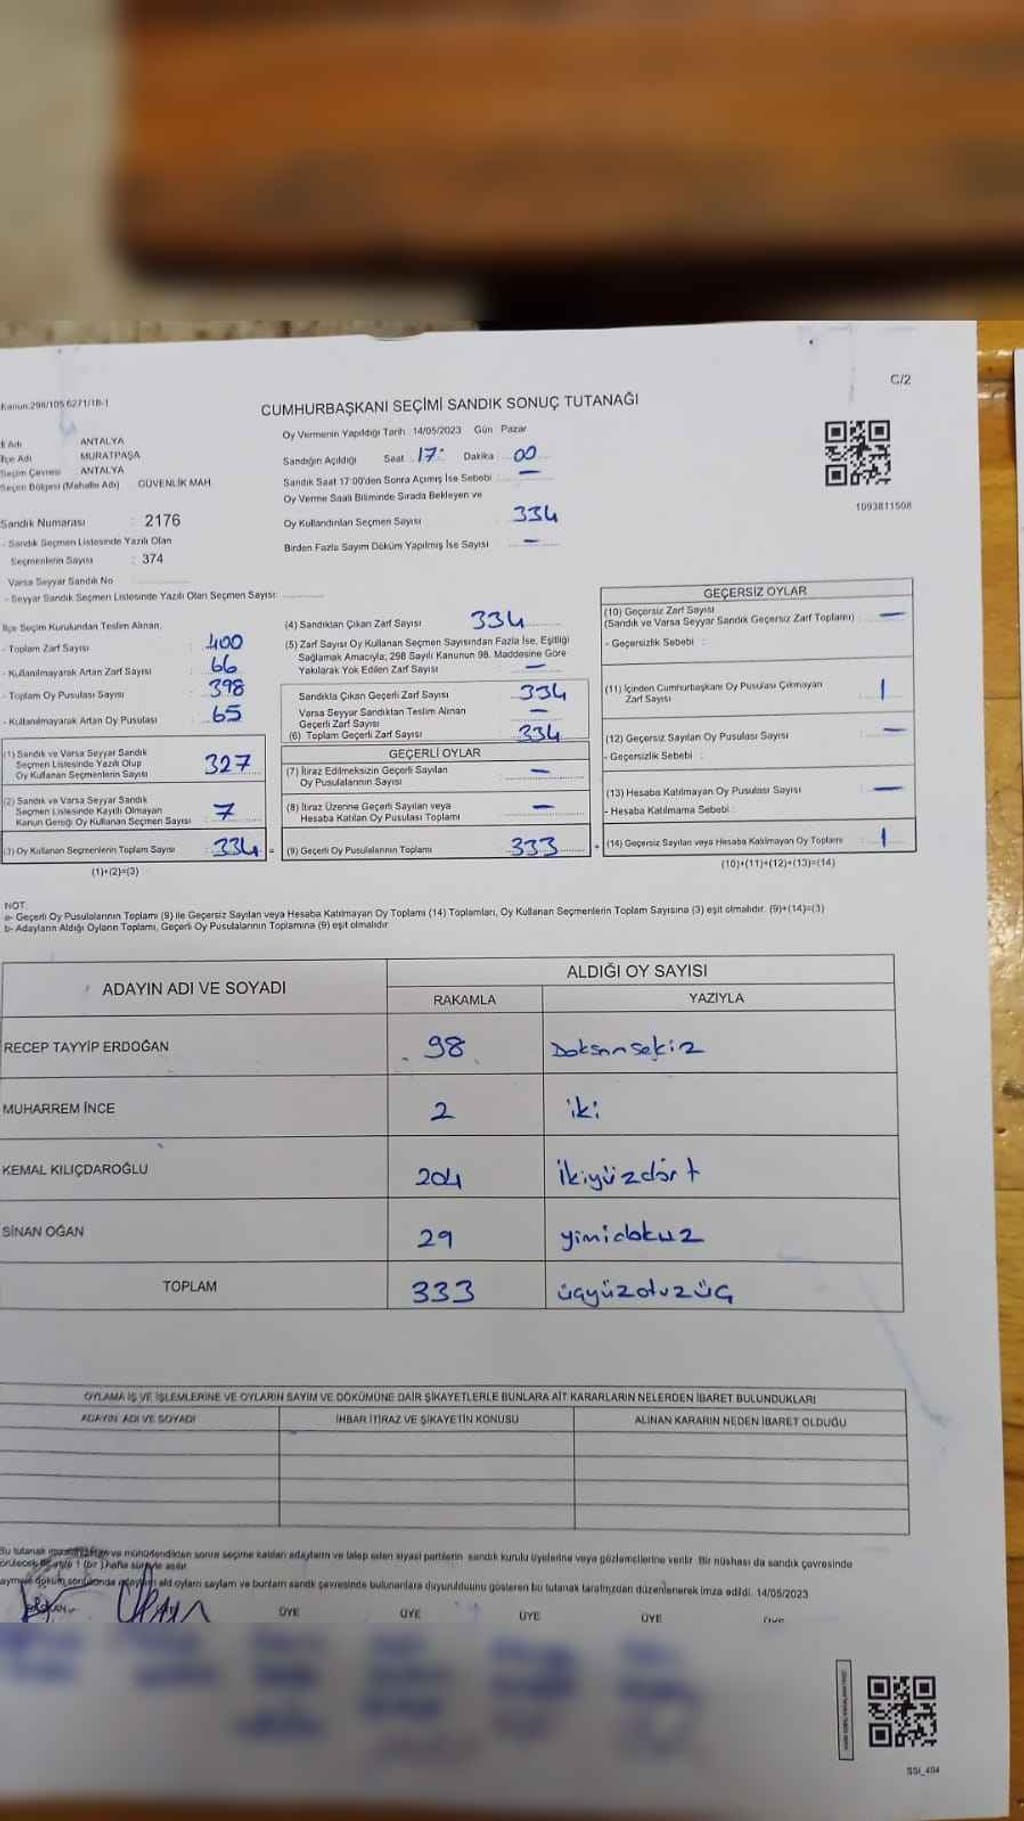 Kanun:298/105 6271/18-1
C/2
CUMHURBAŞKANI SEÇİMİ SANDIK SONUÇ TUTANAĞI
İl Adı ANTALYA
İlçe Adı MURATPAŞA
Seçim Çevresi ANTALYA
Seçim Bölgesi (Mahalle Adı) GÜVENLİK MAH
Sandık Numarası : 2176
- Sandık Seçmen Listesinde Yazılı Olan
Seçmenlerin Sayısı : 374
Varsa Seyyar Sandık No
- Seyyar Sandık Seçmen Listesinde Yazılı Olan Seçmen Sayısı:
Oy Vermenin Yapıldığı Tarih 14/05/2023 Gün Pazar
Sandığın Açıldığı Saat 17: Dakika 00
Sandık Saat 17:00'den Sonra Açılmış İse Sebebi —
Oy Verme Saati Bitiminde Sırada Bekleyen ve
Oy Kullandırılan Seçmen Sayısı 334
Birden Fazla Sayım Döküm Yapılmış İse Sayısı —
1093811508
İlçe Seçim Kurulundan Teslim Alınan;
- Toplam Zarf Sayısı : 400
- Kullanılmayarak Artan Zarf Sayısı : 66
- Toplam Oy Pusulası Sayısı : 398
- Kullanılmayarak Artan Oy Pusulası : 65
(1) Sandık ve Varsa Seyyar Sandık
Seçmen Listesinde Yazılı Olup
Oy Kullanan Seçmenlerin Sayısı 327
(2) Sandık ve Varsa Seyyar Sandık
Seçmen Listesinde Kayıtlı Olmayan
Kanun Gereği Oy Kullanan Seçmen Sayısı 7
(3) Oy Kullanan Seçmenlerin Toplam Sayısı 334 =
(1)+(2)=(3)
(4) Sandıktan Çıkan Zarf Sayısı 334
(5) Zarf Sayısı Oy Kullanan Seçmen Sayısından Fazla İse, Eşitliği
Sağlamak Amacıyla, 298 Sayılı Kanunun 98. Maddesine Göre
Yakılarak Yok Edilen Zarf Sayısı —
Sandıkta Çıkan Geçerli Zarf Sayısı 334
Varsa Seyyar Sandıktan Teslim Alınan
Geçerli Zarf Sayısı —
(6) Toplam Geçerli Zarf Sayısı 334
GEÇERLİ OYLAR
(7) İtiraz Edilmeksizin Geçerli Sayılan
Oy Pusulalarının Sayısı —
(8) İtiraz Üzerine Geçerli Sayılan veya
Hesaba Katılan Oy Pusulası Toplamı —
(9) Geçerli Oy Pusulalarının Toplamı 333 +
GEÇERSİZ OYLAR
(10) Geçersiz Zarf Sayısı
(Sandık ve Varsa Seyyar Sandık Geçersiz Zarf Toplamı) —
- Geçersizlik Sebebi :
(11) İçinden Cumhurbaşkanı Oy Pusulası Çıkmayan
Zarf Sayısı 1
(12) Geçersiz Sayılan Oy Pusulası Sayısı —
- Geçersizlik Sebebi :
(13) Hesaba Katılmayan Oy Pusulası Sayısı —
- Hesaba Katılmama Sebebi :
(14) Geçersiz Sayılan veya Hesaba Katılmayan Oy Toplamı 1
(10)+(11)+(12)+(13)=(14)
NOT:
a- Geçerli Oy Pusulalarının Toplamı (9) ile Geçersiz Sayılan veya Hesaba Katılmayan Oy Toplamı (14) Toplamları, Oy Kullanan Seçmenlerin Toplam Sayısına (3) eşit olmalıdır. (9)+(14)=(3)
b- Adayların Aldığı Oyların Toplamı, Geçerli Oy Pusulalarının Toplamına (9) eşit olmalıdır
ADAYIN ADI VE SOYADI ALDIĞI OY SAYISI
RAKAMLA YAZIYLA
RECEP TAYYİP ERDOĞAN 98 Doksansekiz
MUHARREM İNCE 2 iki
KEMAL KILIÇDAROĞLU 204 ikiyüzdört
SİNAN OĞAN 29 yimidokuz
TOPLAM 333 üçyüzotuzüç
OYLAMA İŞ VE İŞLEMLERİNE VE OYLARIN SAYIM VE DÖKÜMÜNE DAİR ŞİKAYETLERLE BUNLARA AİT KARARLARIN NELERDEN İBARET BULUNDUKLARI
ADAYIN ADI VE SOYADI İHBAR İTİRAZ VE ŞİKAYETİN KONUSU ALINAN KARARIN NEDEN İBARET OLDUĞU
Bu tutanak ve mühürlendikten sonra seçime katılan adayların ve talep eden siyasi partilerin sandık kurulu üyelerine veya gözlemcilerine verilir. Bir nüshası da sandık çevresinde
1 (bir) hafta süreyle asılır.
döküm sonucunda aldı oyların sayılan ve bunların sandık çevresinde bulunanlara duyurulduğunu gösteren bu tutanak tarafımızdan düzenlenerek imza edildi. 14/05/2023
ÜYE ÜYE ÜYE ÜYE
SSI_494